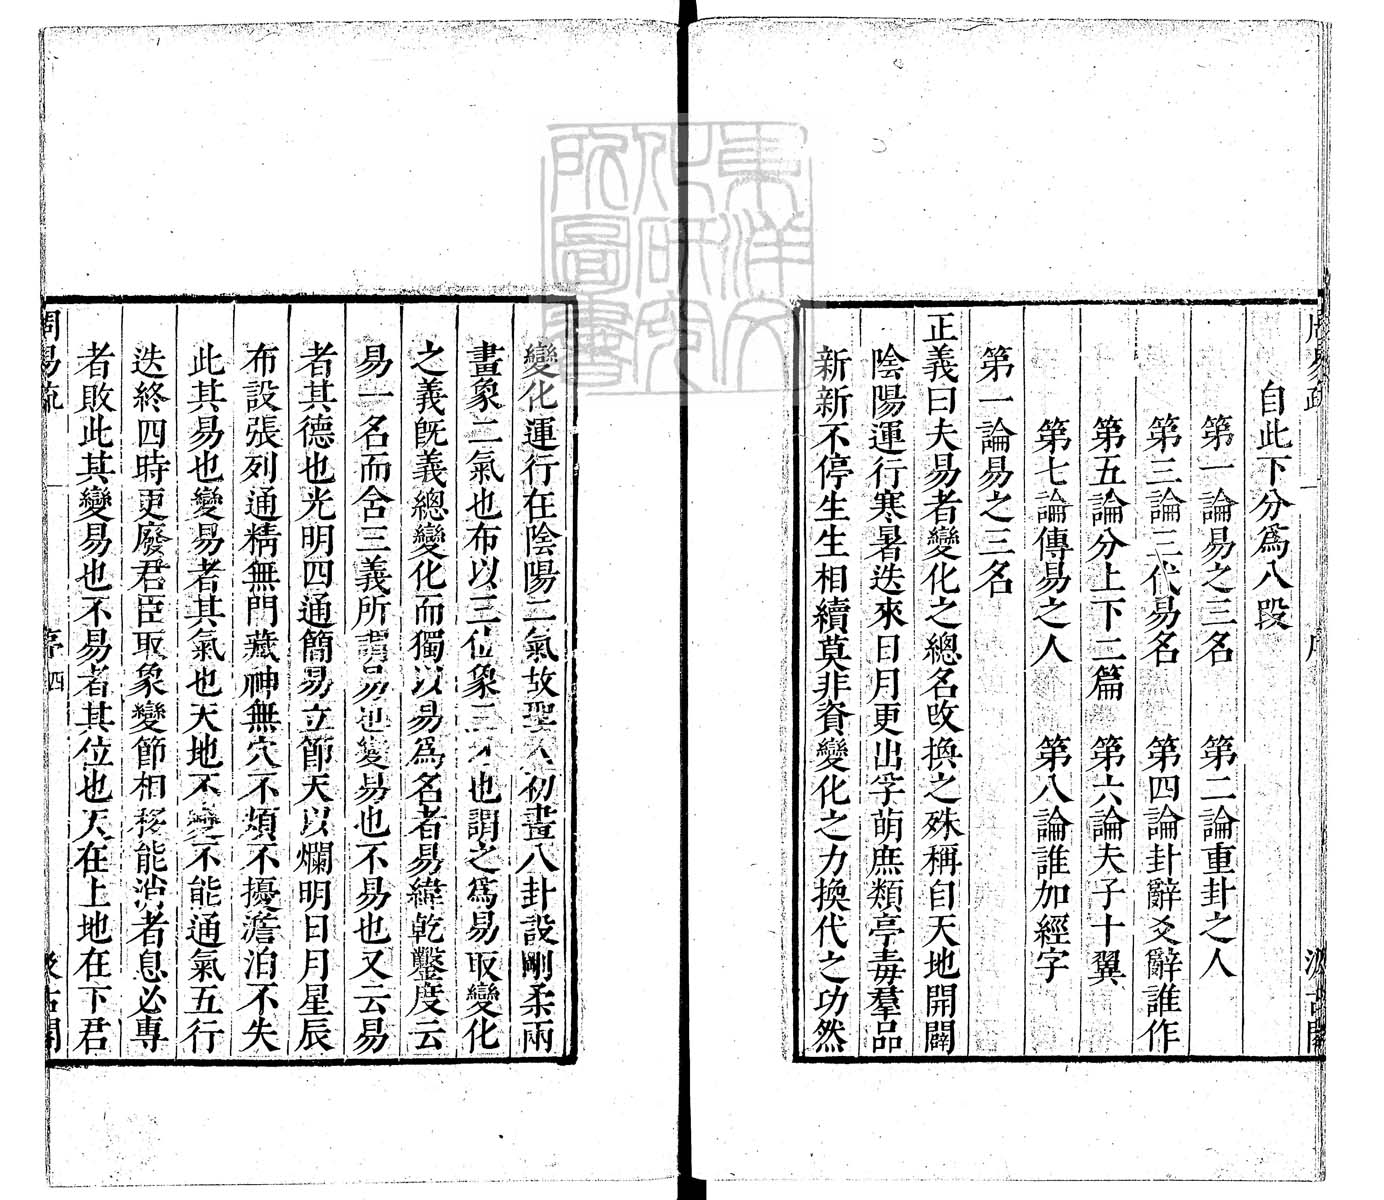 周易疏 序 汲古閣
自此下分爲八段
第一論易之三名 第二論重卦之人
第三論三代易名 第四論卦辭爻辭誰作
第五論分上下二篇 第六論夫子十翼
第七論傳易之人 第八論誰加經字
第一論易之三名
正義曰夫易者變化之總名改換之殊稱自天地開闢
陰陽運行寒暑迭來日月更出孚萌庶類亭毒羣品
新新不停生生相續莫非資變化之力換代之功然
變化運行在陰陽二氣故聖人初畫八卦設剛柔兩
畫象二氣也布以三位象三才也謂之爲易取變化
之義旣義總變化而獨以易爲名者易緯乾鑿度云
易一名而含三義所謂易也變易也不易也又云易
者其德也光明四通簡易立節天以爛明日月星辰
布設張列通精無門藏神無穴不煩不擾澹泊不失
此其易也變易者其氣也天地不變不能通氣五行
迭終四時更廢君臣取象變節相移能消者息必專
者敗此其變易也不易者其位也天在上地在下君
周易疏 序 四 汲古閣
東洋文化研究所圖書